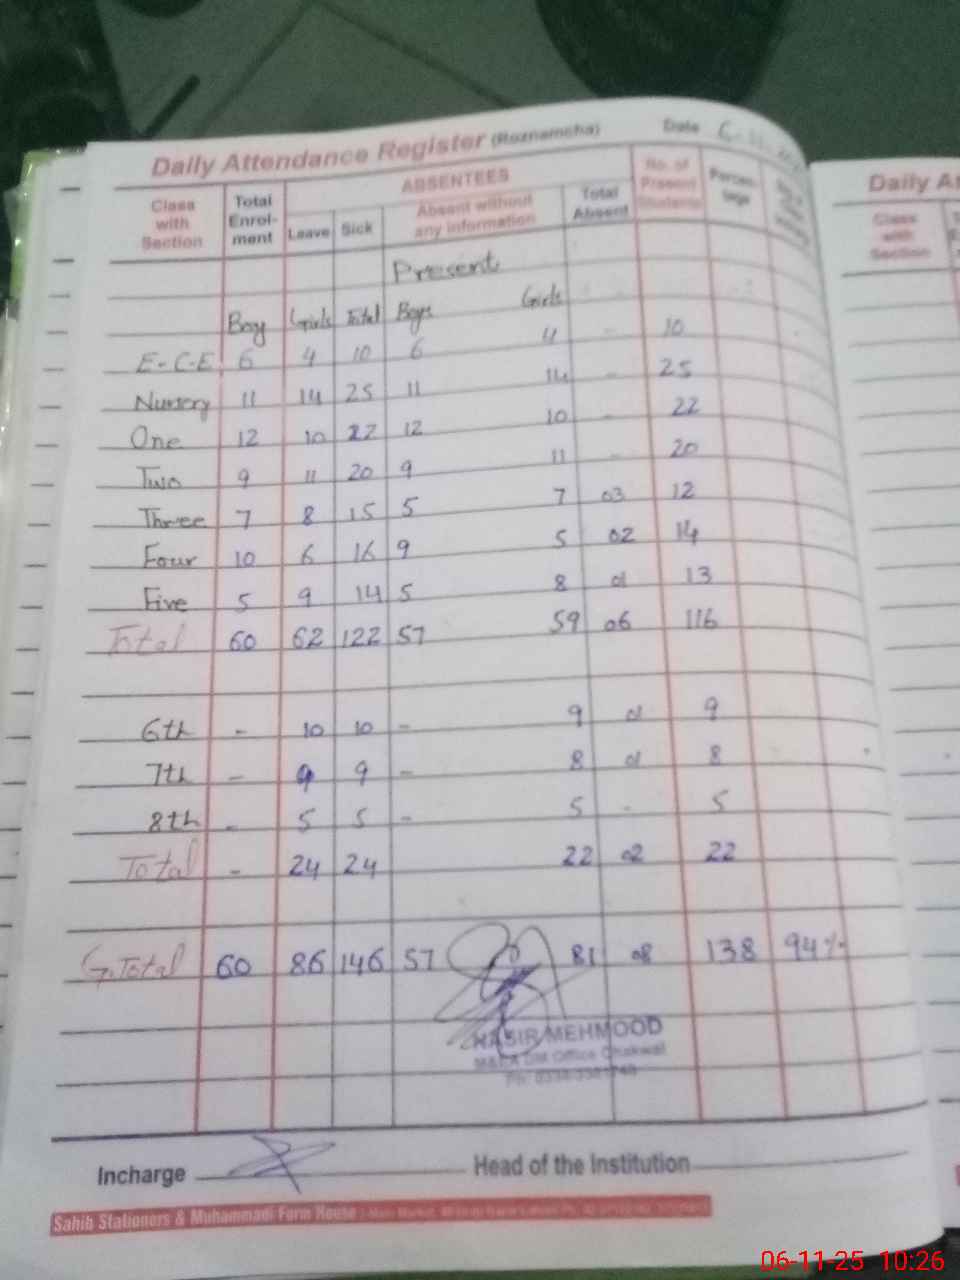 Daily Attendance Register (Roznamcha) Date
Class with Section Total Enrol-ment ABSENTEES Leave Sick Absent without any information Total Absent No. of Present Students Percen-tage
Present
Boy Girls Total Boys Girls
E-C-E 6 4 10 6 4 - 10
Nursery 11 14 25 11 14 - 25
One 12 10 22 12 10 - 22
Two 9 11 20 9 11 - 20
Three 7 8 15 5 7 03 12
Four 10 6 16 9 5 02 14
Five 5 9 14 5 8 01 13
Total 60 62 122 57 59 06 116
6th - 10 10 - 9 01 9
7th - 9 9 - 8 01 8
8th - 5 5 - 5 - 5
Total - 24 24 22 02 22
G.Total 60 86 146 57 81 08 138 94%
NASIR MEHMOOD
Office Chakwal
Incharge Head of the Institution
Sahib Stationers & Muhammadi Form House
Daily At
Class with Section
06-11-25 10:26